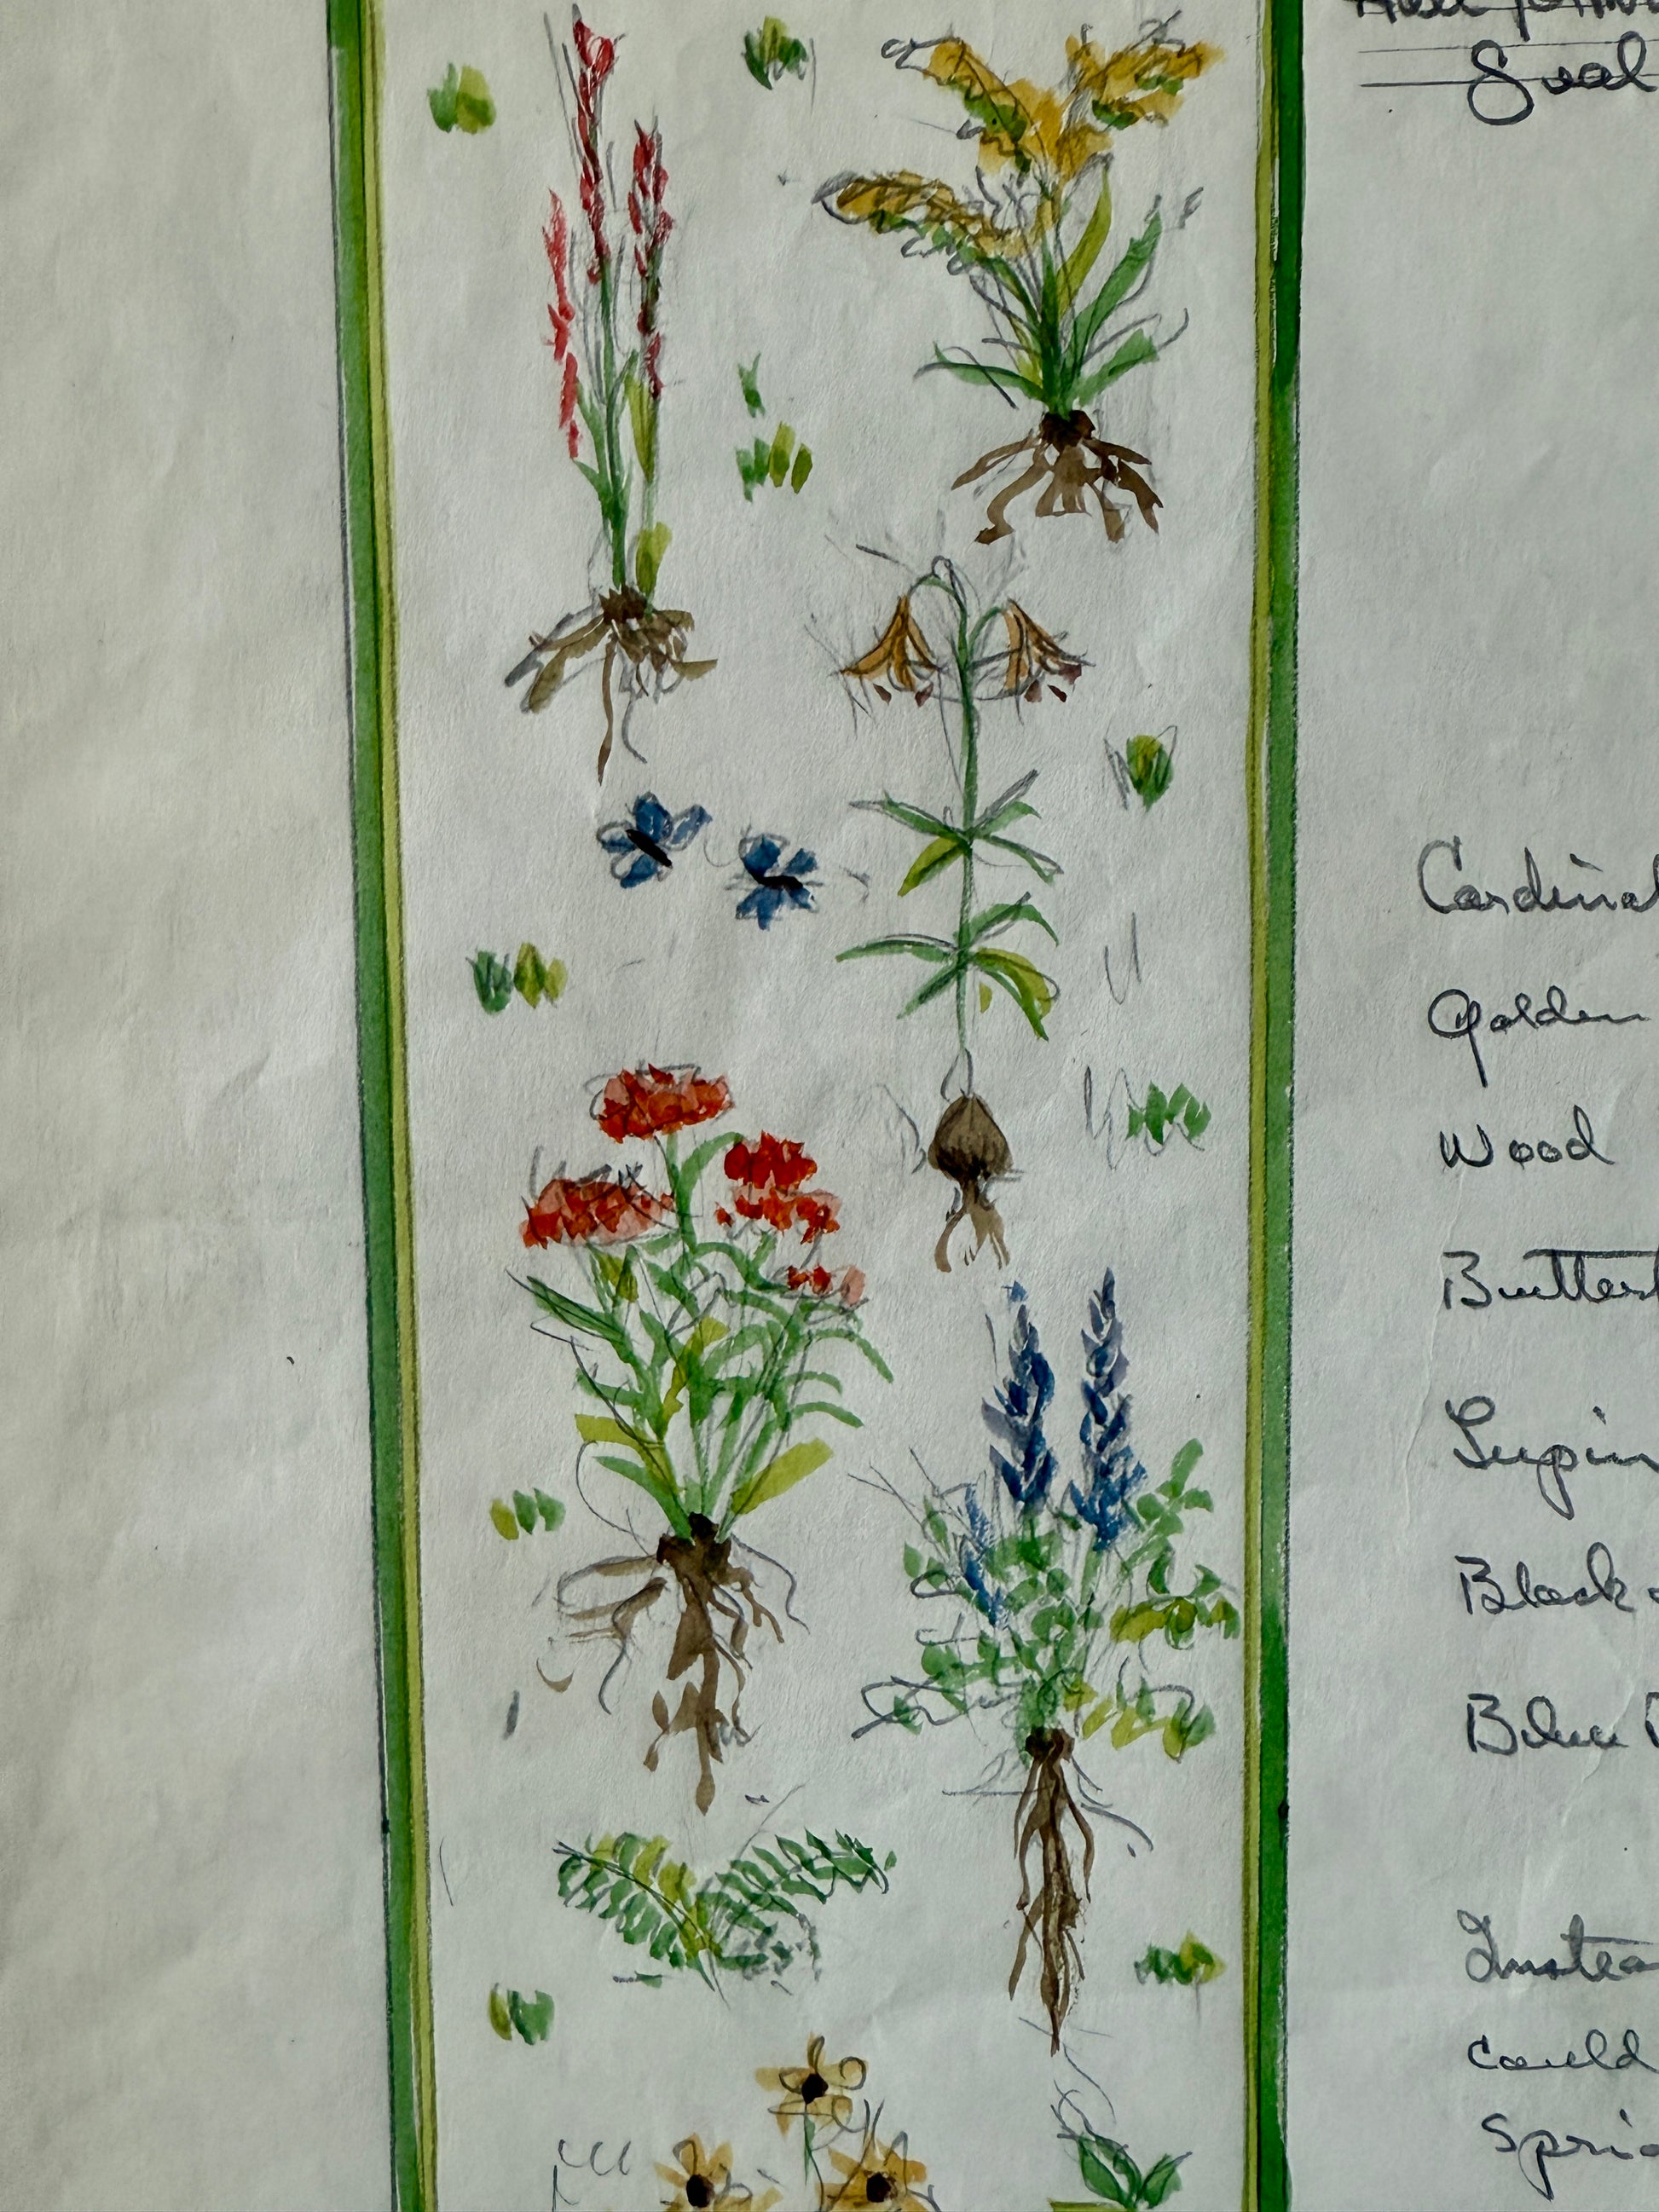 Seal
Cardinal
Golden
Wood
Butterf
Lupin
Black
Blue
Instea
could
Spri